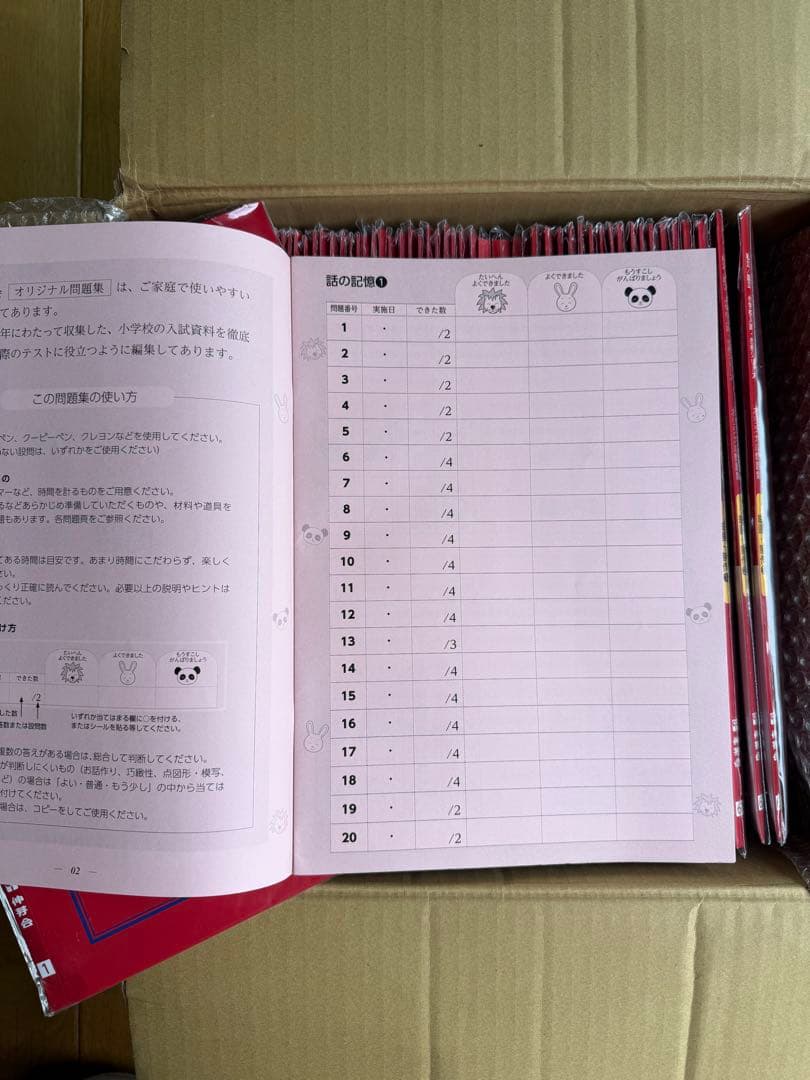 オリジナル問題集 は、ご家庭で使いやすい
てあります。
年にわたって収集した、小学校の入試資料を徹底
際のテストに役立つように編集してあります。
この問題集の使い方
ペン、クーピーペン、クレヨンなどを使用してください。
ない設問は、いずれかをご使用ください)
の
マーなど、時間を計るものをご用意ください。
るなどあらかじめ準備していただくものや、材料や道具を
題もあります。各問題頁をご参照ください。
てある時間は目安です。あまり時間にこだわらず、楽しく
さい。
っくり正確に読んでください。必要以上の説明やヒントは
ください。
け方
たいへん
よくできました
よくできました
もうすこし
がんばりましょう
できた数
/2
した数
答数または設問数
いずれか当てはまる欄に○を付ける、
またはシールを貼る等してください。
複数の答えがある場合は、総合して判断してください。
が判断しにくいもの(お話作り、巧緻性、点図形・模写、
ど)の場合は「よい・普通・もう少し」の中から当ては
付けてください。
場合は、コピーをしてご使用ください。
― 02 ―
話の記憶❶
たいへん
よくできました
よくできました
もうすこし
がんばりましょう
問題番号 実施日 できた数
1 ・ /2
2 ・ /2
3 ・ /2
4 ・ /2
5 ・ /2
6 ・ /4
7 ・ /4
8 ・ /4
9 ・ /4
10 ・ /4
11 ・ /4
12 ・ /4
13 ・ /3
14 ・ /4
15 ・ /4
16 ・ /4
17 ・ /4
18 ・ /4
19 ・ /2
20 ・ /2
伸芽会
1